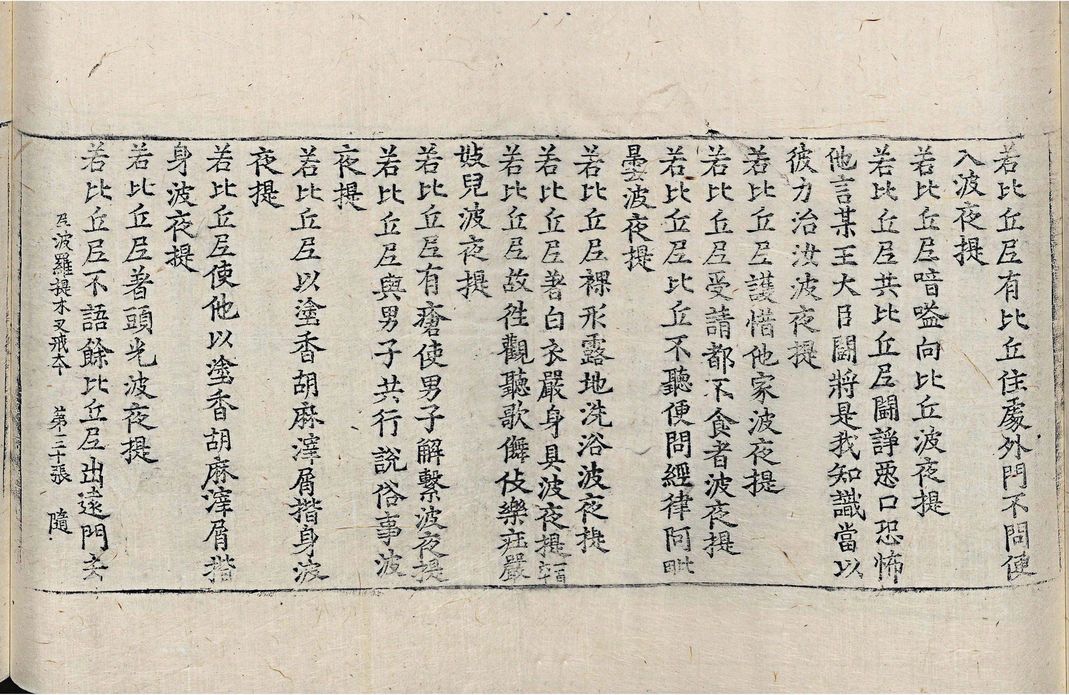 若比丘尼有比丘住處外門不問便
入波夜提
若比丘尼喑嗌向比丘波夜提
若比丘尼共比丘尼鬪諍惡口恐怖
他言某王大臣鬪將是我知識當以
彼力治汝波夜提
若比丘尼護惜他家波夜提
若比丘尼受請都不食者波夜提
若比丘尼比丘不聽便問經律阿毗
曇波夜提
若比丘尼裸形露地洗浴波夜提
若比丘尼著白衣嚴身具波夜提一百五十
若比丘尼故往觀聽歌儛伎樂莊嚴
妓兒波夜提
若比丘尼有瘡使男子解繫波夜提
若比丘尼與男子共行說俗事波
夜提
若比丘尼以塗香胡麻滓屑揩身波
夜提
若比丘尼使他以塗香胡麻滓屑揩
身波夜提
若比丘尼著頭光波夜提
若比丘尼不語餘比丘尼出遠門去
尼波羅提木叉戒本 第三十張 隨